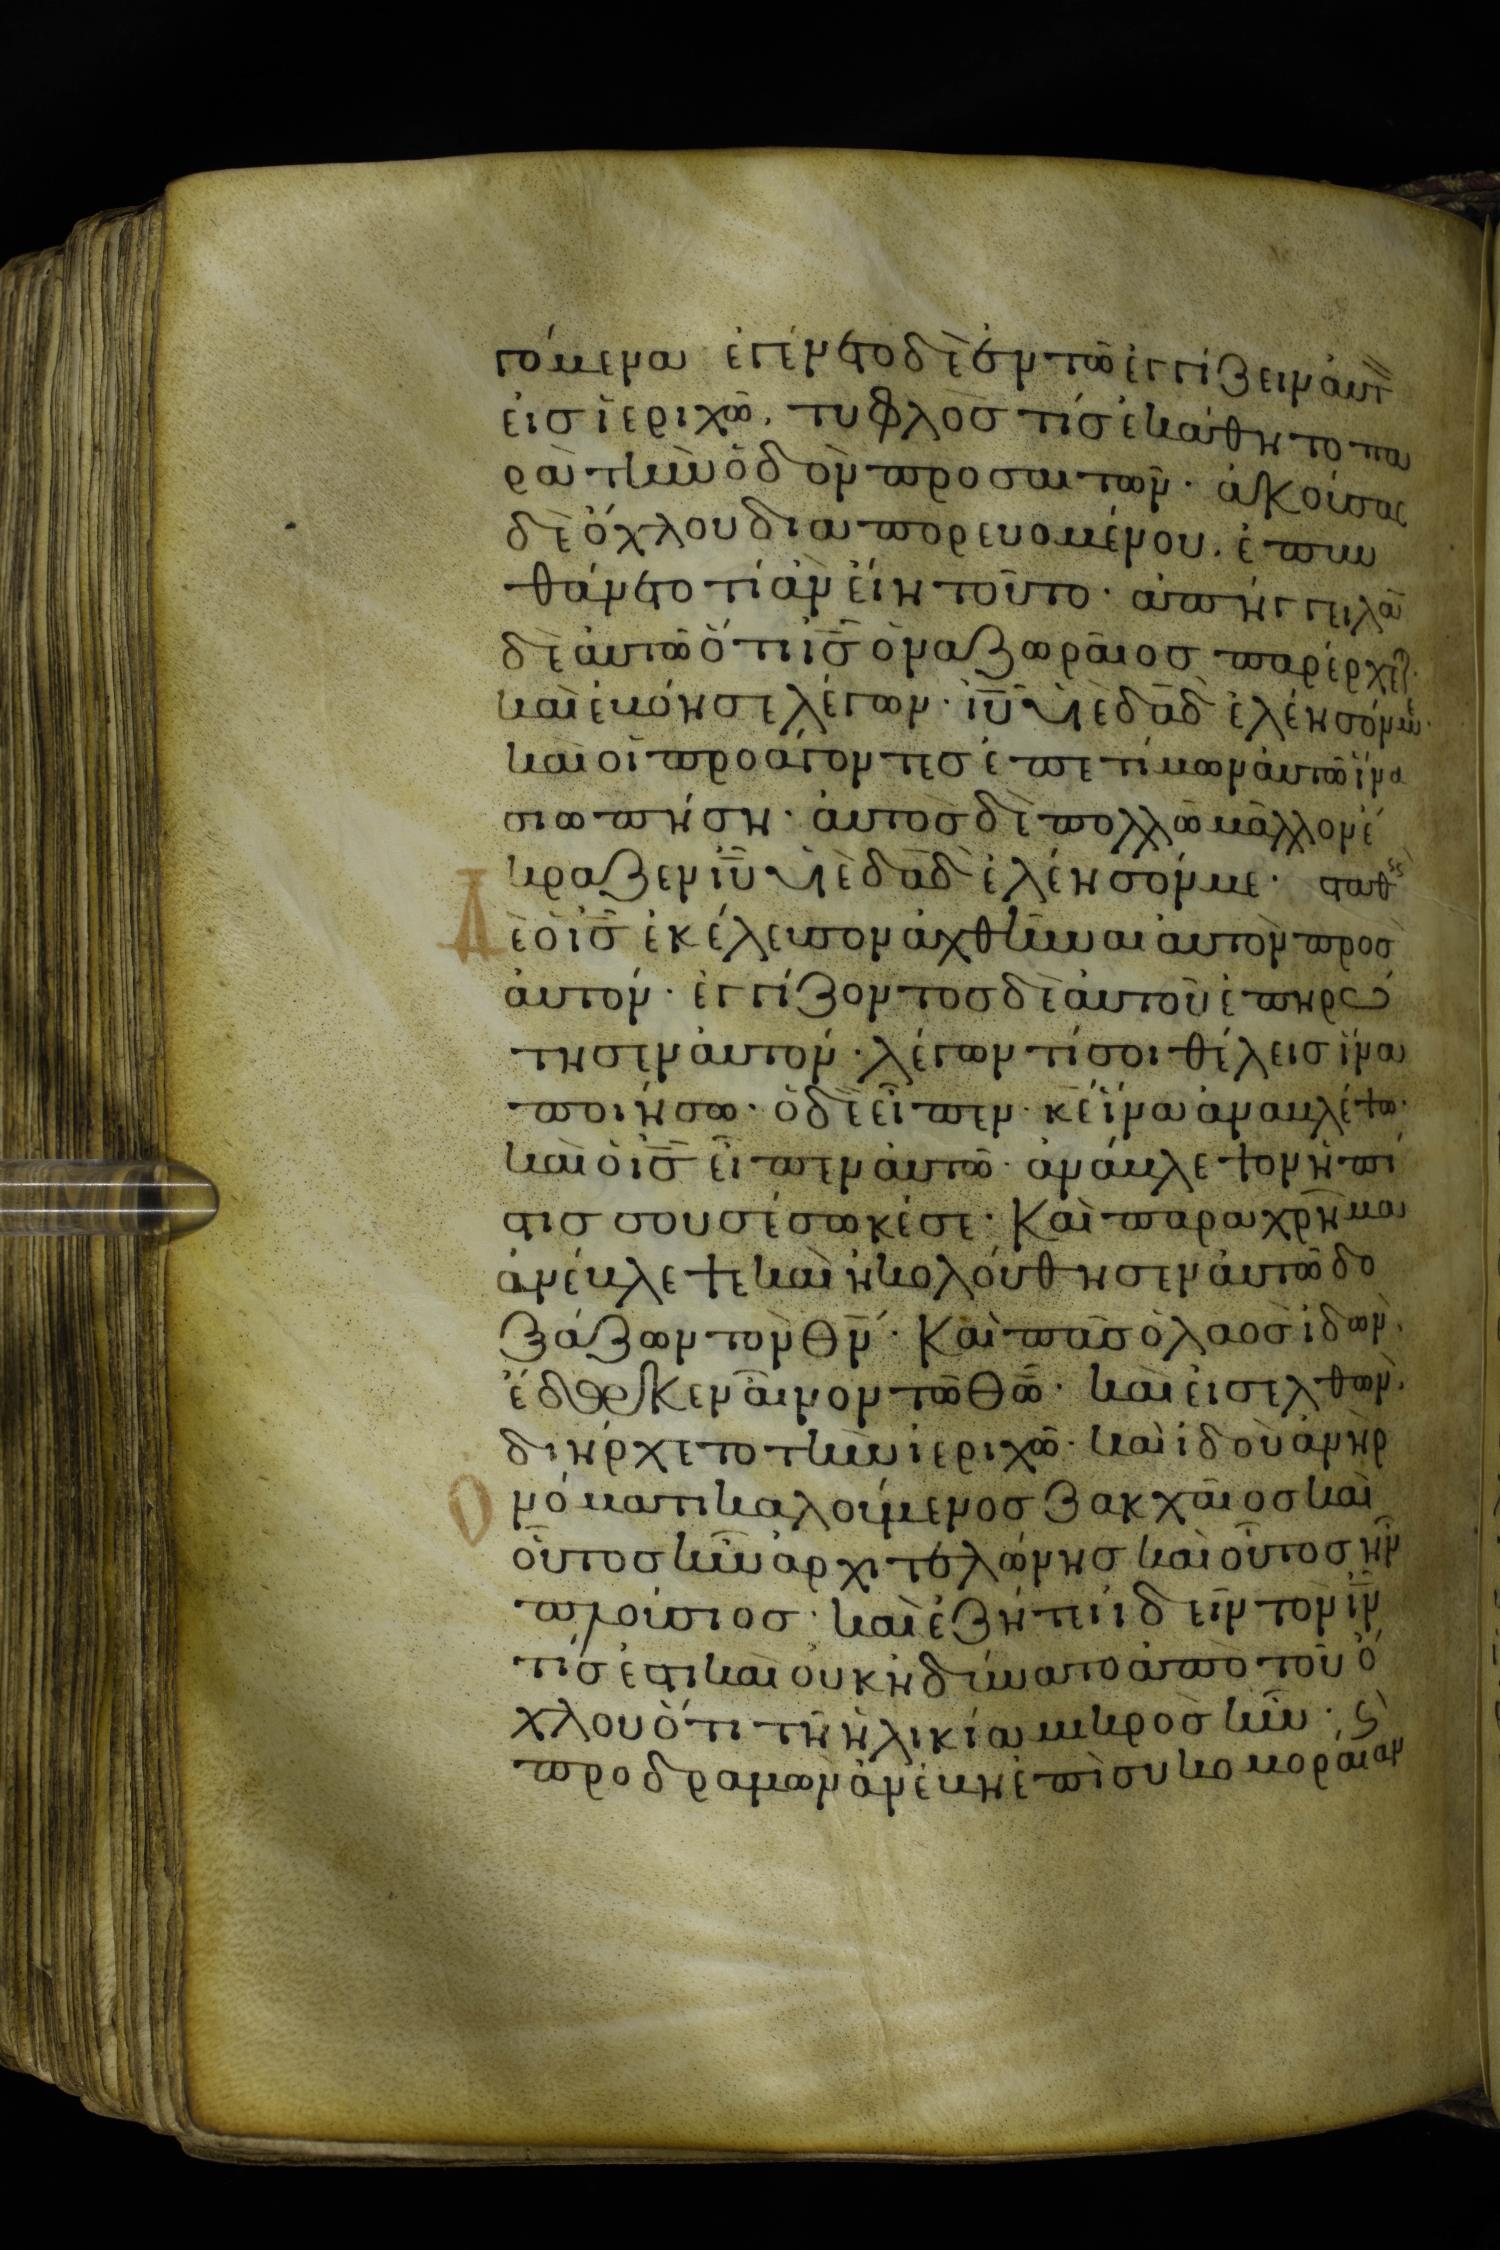 γόμενα ἐγένετο δὲ ἐν τῶ ἐγγίζειν ἀυτ
εἰς ϊεριχῶ, τυφλὸς τίς ἐκάθητο πα
ρὰ τὴν ὁδὸν προσαιτῶν· ἀκούσας
δὲ ὄχλου διαπορευομένου, ἐπυν
θάνετο τί ἂν εἴη τοῦτο· ἀπήγγειλαν
δὲ ἀυτῶ ὅτι ις ὁ ναζωραῖος παρέρχεται·
καὶ ἐβόησε λέγων· ιυ υἱὲ δαδ ἐλέησόν με·
καὶ οἱ προάγοντες ἐπετίμων ἀυτῶ ἵνα
σιωπήση· ἀυτὸς δὲ πολλῶ μᾶλλον ἔ
κραζεν ιυ υἱὲ δαδ ἐλέησόν με· σταθεὶς
Δὲ ὁ ις ἐκέλευσον ἀχθῆναι ἀυτὸν προς
ἀυτόν· ἐγγίζοντος δὲ ἀυτοῦ ἐπηρώ
τησεν ἀυτόν· λέγων τί σοι θέλεις ἵνα
ποιήσω· ὁ δὲ εἶπεν· κε ἵνα ἀναβλέψω·
καὶ ὁ ις εἶπεν ἀυτῶ· ἀνάβλεψον ἡ πί
στις σου σέσωκέ σε· Καὶ παραχρῆμα
ἀνέβλεψε καὶ ἠκολούθησεν ἀυτῶ δο
ξάζων τὸν θν· Καὶ πᾶς ὁ λαος ἰδὼν·
ἔδωκεν αἶνον τῶ θω· καὶ ἐισελθὼν·
διήρχετο τὴν ἱεριχῶ· καὶ ἰδοὺ ἀνὴρ
Ὀνόματι καλούμενος ζακχαῖος καὶ
οὗτος ἦν ἀρχιτελώνης καὶ οὗτος ἦν
πλούσιος· καὶ ἐζήτει ἰδεῖν τὸν ιν
τίς ἐστι καὶ ὀυκ ἠδύνατο ἀπὸ τοῦ ὄ
χλου ὅτι τῆ ἡλικία μικρὸς ἦν· ϛ
προδραμὼν ἀνέβη ἐπὶ συκομοραίαν